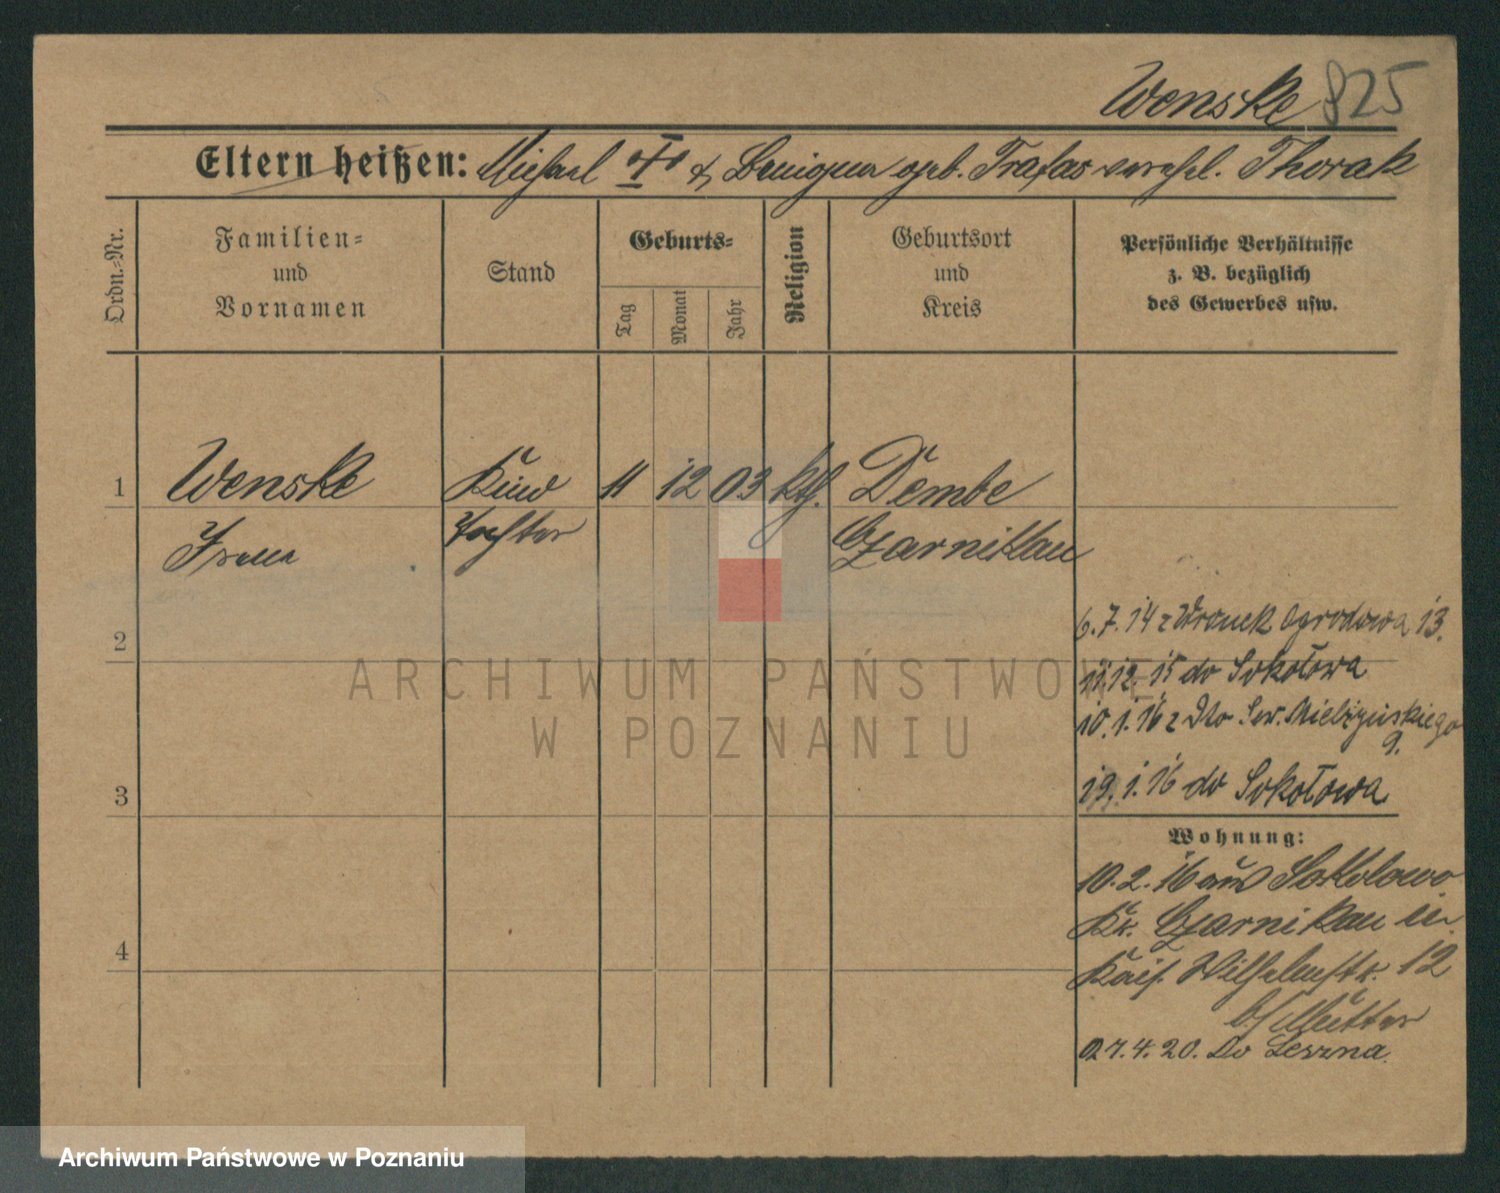 Wenske 825
Eltern heißen: Michael & geb. verehel. Thorak
Ordn.-Nr.
Familien-
und
Vornamen
Stand
Geburts-
Tag
Monat
Jahr
Religion
Geburtsort
und
Kreis
Persönliche Verhältnisse
z. B. bezüglich
des Gewerbes usw.
1 Wenske Kind 11 12 03 kth. Dembe
Irena Tochter Czarnikau
2
3
4
6.7.14 z Wronek Ogrodowa 13.
11.12.15 do Sokołowa
10.1.16 z Sew. Mielżyńskiego
9.
19.1.16 do Sokołowa
Wohnung:
10.2.16 aus Sokolowo
Kr. Czarnikau in
Kais. Wilhelmstr. 12
b/ Mutter
27.4.20. Do Leszna.
ARCHIWUM PAŃSTWOWE
W POZNANIU
Archiwum Państwowe w Poznaniu